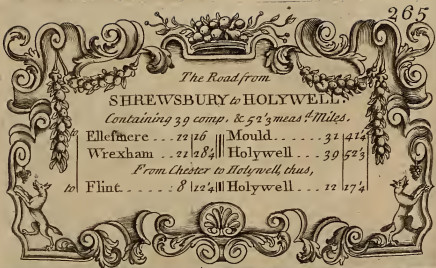 265
The Road from
SHREWSBURY to HOLYWELL.
Containing 39 comp. & 52'3 meas.d Miles.
to Ellesmere . . 12 16 Mould . . . . 32 41'4
Wrexham . . 21 28'4 Holywell . . . 39 52'3
From Chester to Holywell, thus,
to Flint . . . . 8 12'4 Holywell . . . 12 17'4